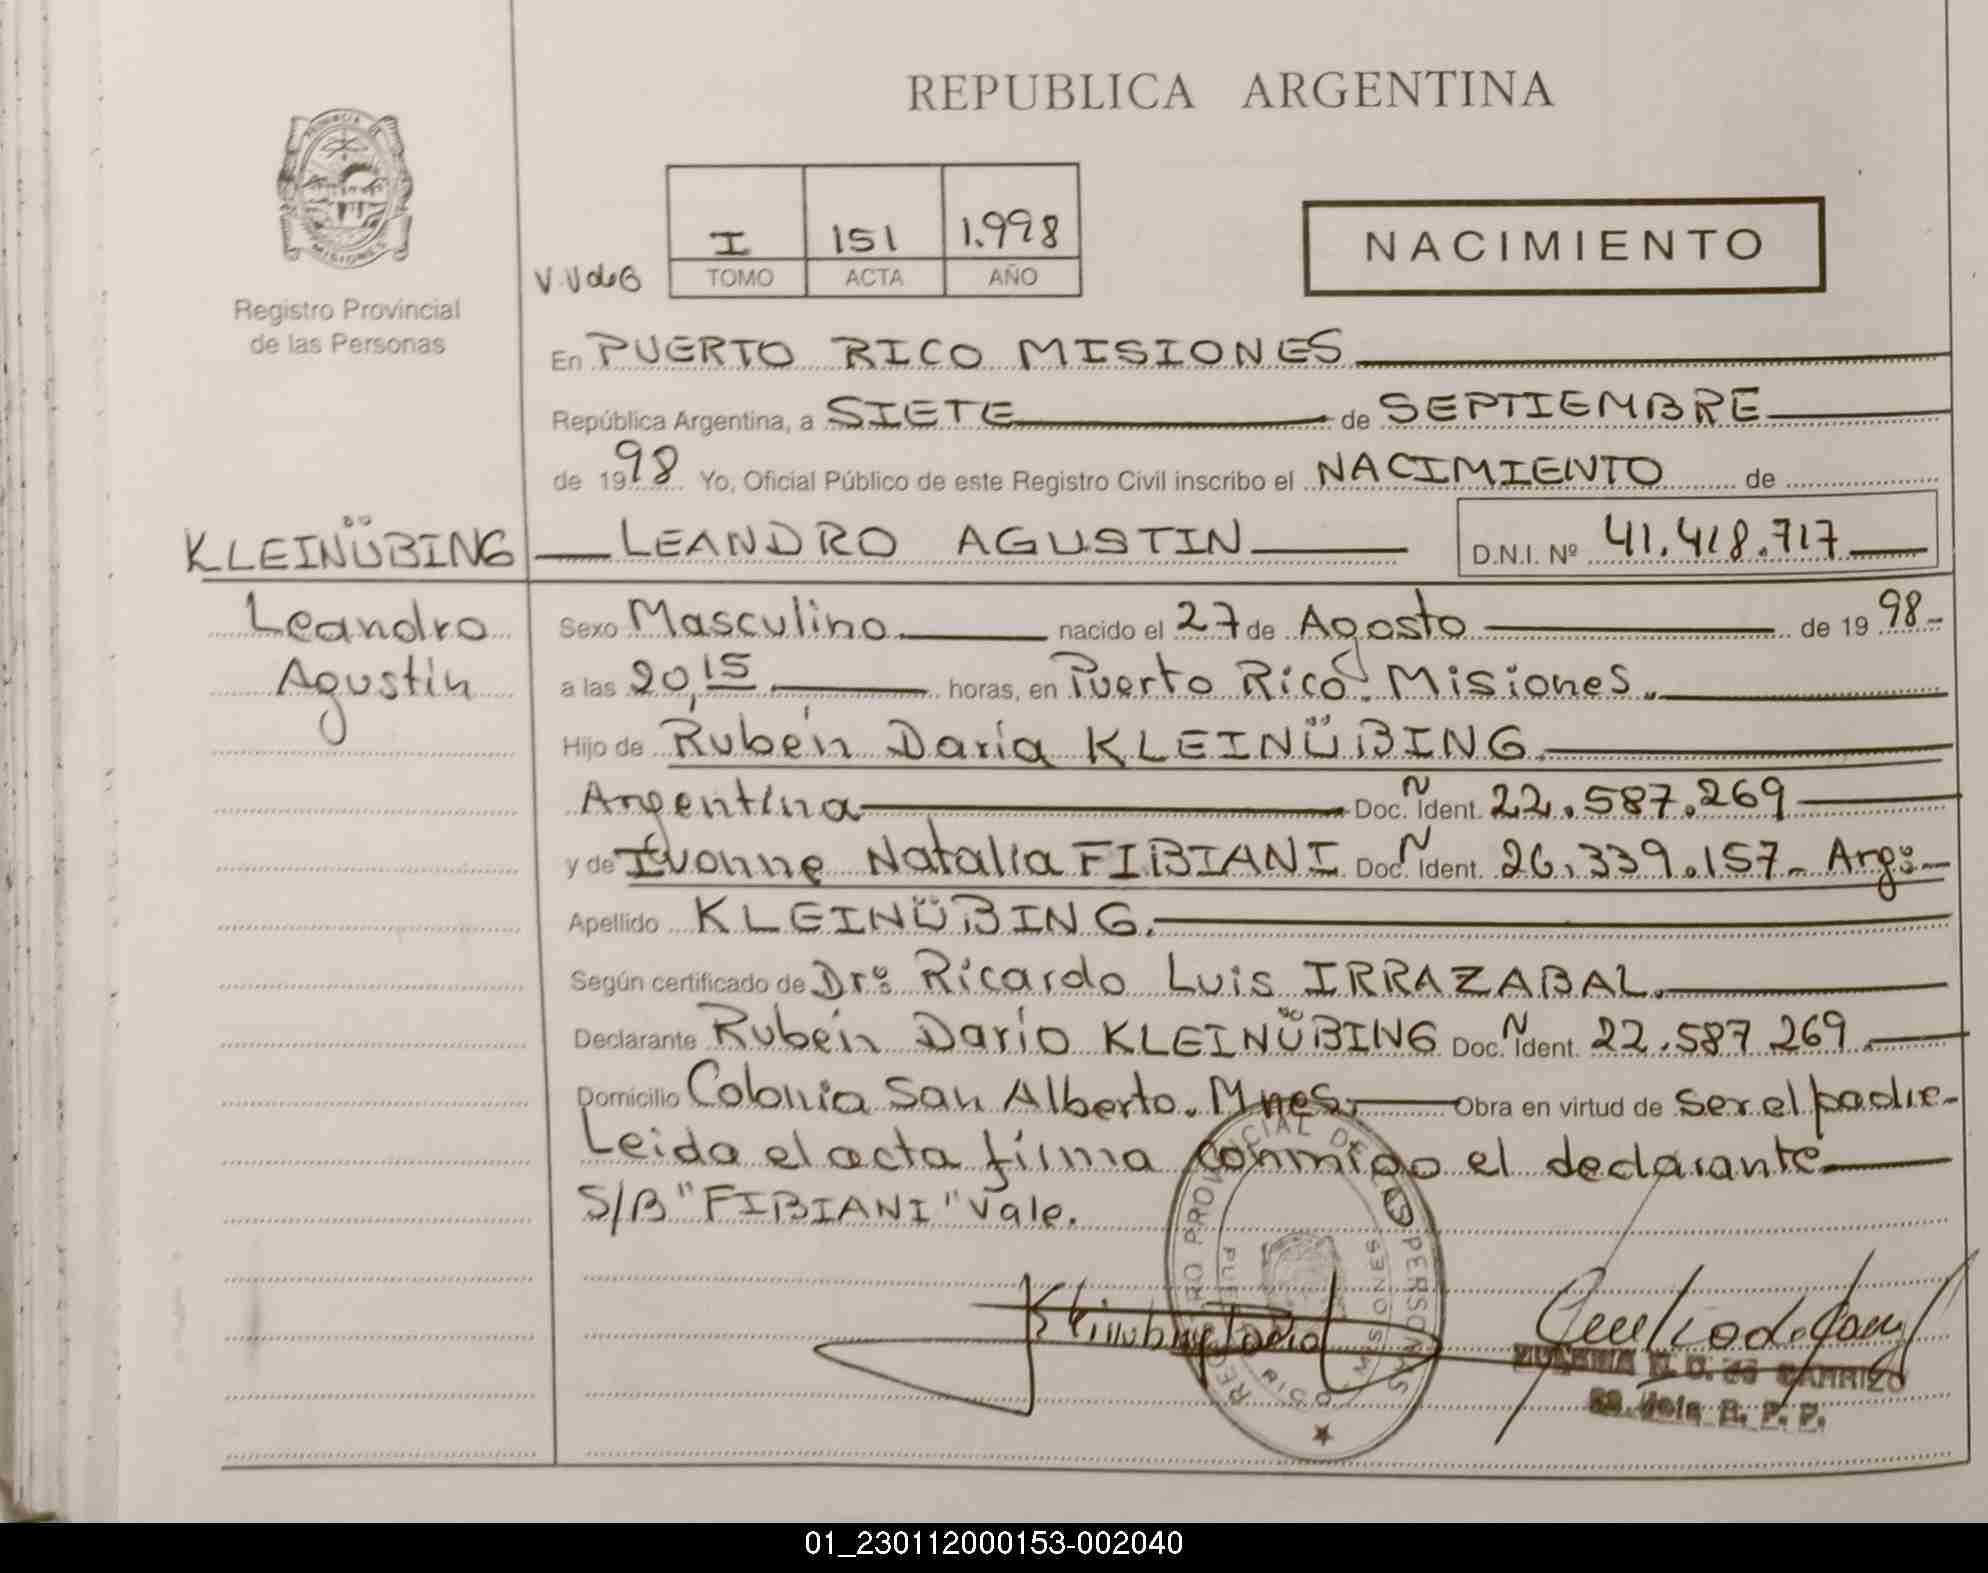 REPUBLICA ARGENTINA
PROVINCIA DE
MISIONES
Registro Provincial
de las Personas
I 151 1.998
TOMO ACTA AÑO
V.V de B
NACIMIENTO
En PUERTO RICO MISIONES
República Argentina, a SIETE de SEPTIEMBRE
de 1998 Yo, Oficial Público de este Registro Civil inscribo el NACIMIENTO de
KLEINÜBING LEANDRO AGUSTIN D.N.I. Nº 41.418.717
Leandro
Agustín
Sexo Masculino nacido el 27 de Agosto de 19 98-
a las 20,15 horas, en Puerto Rico. Misiones.
Hijo de Rubén Daría KLEINÜBING
Argentina Doc. N Ident. 22.587.269
y de Ivonne Natalia FIBIANI Doc. N Ident. 26.339.157- Arg:-
Apellido KLEINÜBING.
Según certificado de Dr: Ricardo Luis IRRAZABAL.
Declarante Rubén Darío KLEINÜBING Doc. N Ident. 22.587 269.
Domicilio Colonia San Alberto. Mnes. Obra en virtud de ser el padre-
Leida el acta firma conmigo el declarante
S/B "FIBIANI" Vale.
REGISTRO PROVINCIAL DE LAS PERSONAS
PUERTO RICO MISIONES
Kleinubing Dario
de CARRIZO
R. P. P.
01_230112000153-002040